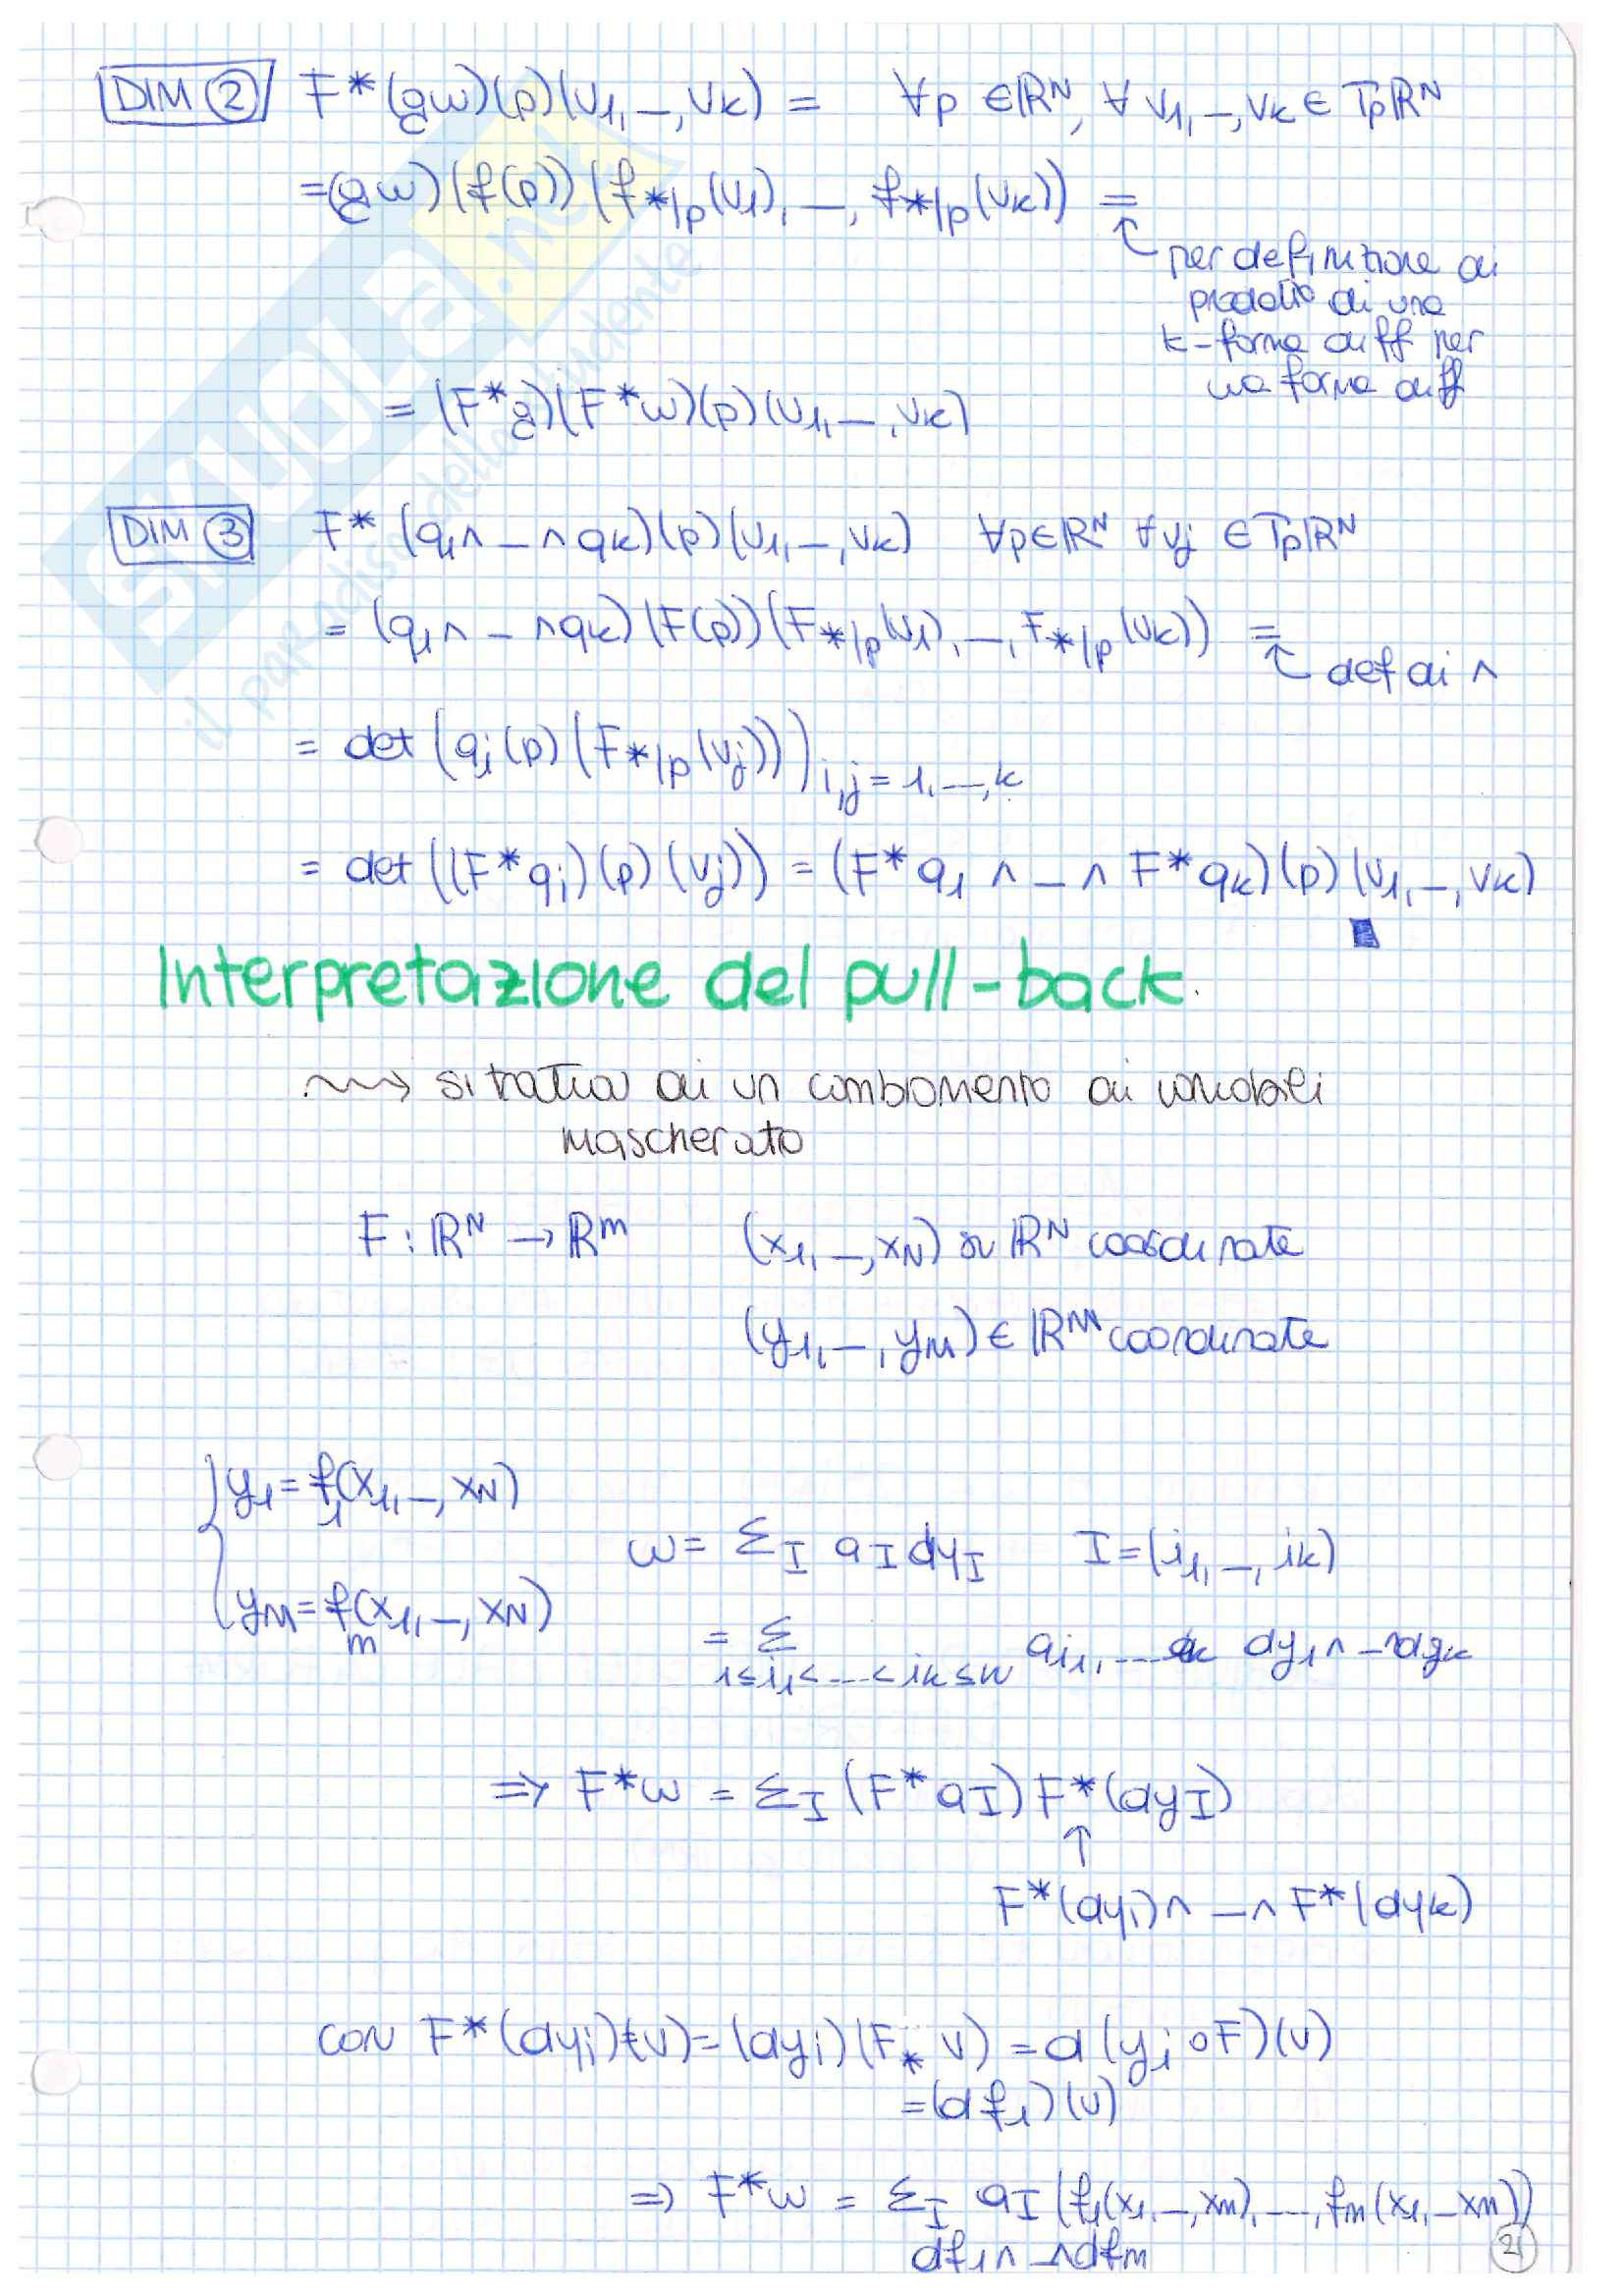 DIM ② F*(gω)(p)(v1,_,vk) = ∀p ∈ ℝᴺ, ∀ v1,_,vk ∈ Tpℝᴺ
=(gω)(f(p))(f*|p(v1),_,f*|p(vk)) =
↑ per definizione di
prodotto di una
k-forma diff per
una forma diff
= (F*g)(F*ω)(p)(v1,_,vk)
DIM ③ F*(φ1∧_∧φk)(p)(v1,_,vk) ∀p∈ℝᴺ ∀vj ∈ Tpℝᴺ
= (φ1∧_∧φk)(F(p))(F*|p(v1),_,F*|p(vk)) =
↑ def di ∧
= det(φi(p)(F*|p(vj)))i,j=1,...,k
= det((F*φi)(p)(vj)) = (F*φ1 ∧_∧ F*φk)(p)(v1,_,vk)
Interpretazione del pull-back.
⇝ si tratta di un cambiamento di variabili
mascherato
F: ℝᴺ → ℝᵐ (x1,_,xN) su ℝᴺ coordinate
(y1,_,yM) ∈ ℝᴹ coordinate
{y1=f1(x1,_,xN)
ω = ΣI aI dyI I=(i1,_,ik)
yM=fm(x1,_,xN)
= Σ1≤i1<...<ik≤N ai1,...ik dy1∧_∧dyk
⇒ F*ω = ΣI (F*aI) F*(dyI)
↑
F*(dyi)∧_∧F*(dyk)
con F*(dyi)(v)=(dyi)(F* v) = d(yi∘F)(v)
=(df1)(v)
⇒ F*ω = ΣI aI(f1(x1,_,xn),...,fm(x1,_xn))
df1∧_∧dfm
21
SKUOLA.net
il paradiso dello studente